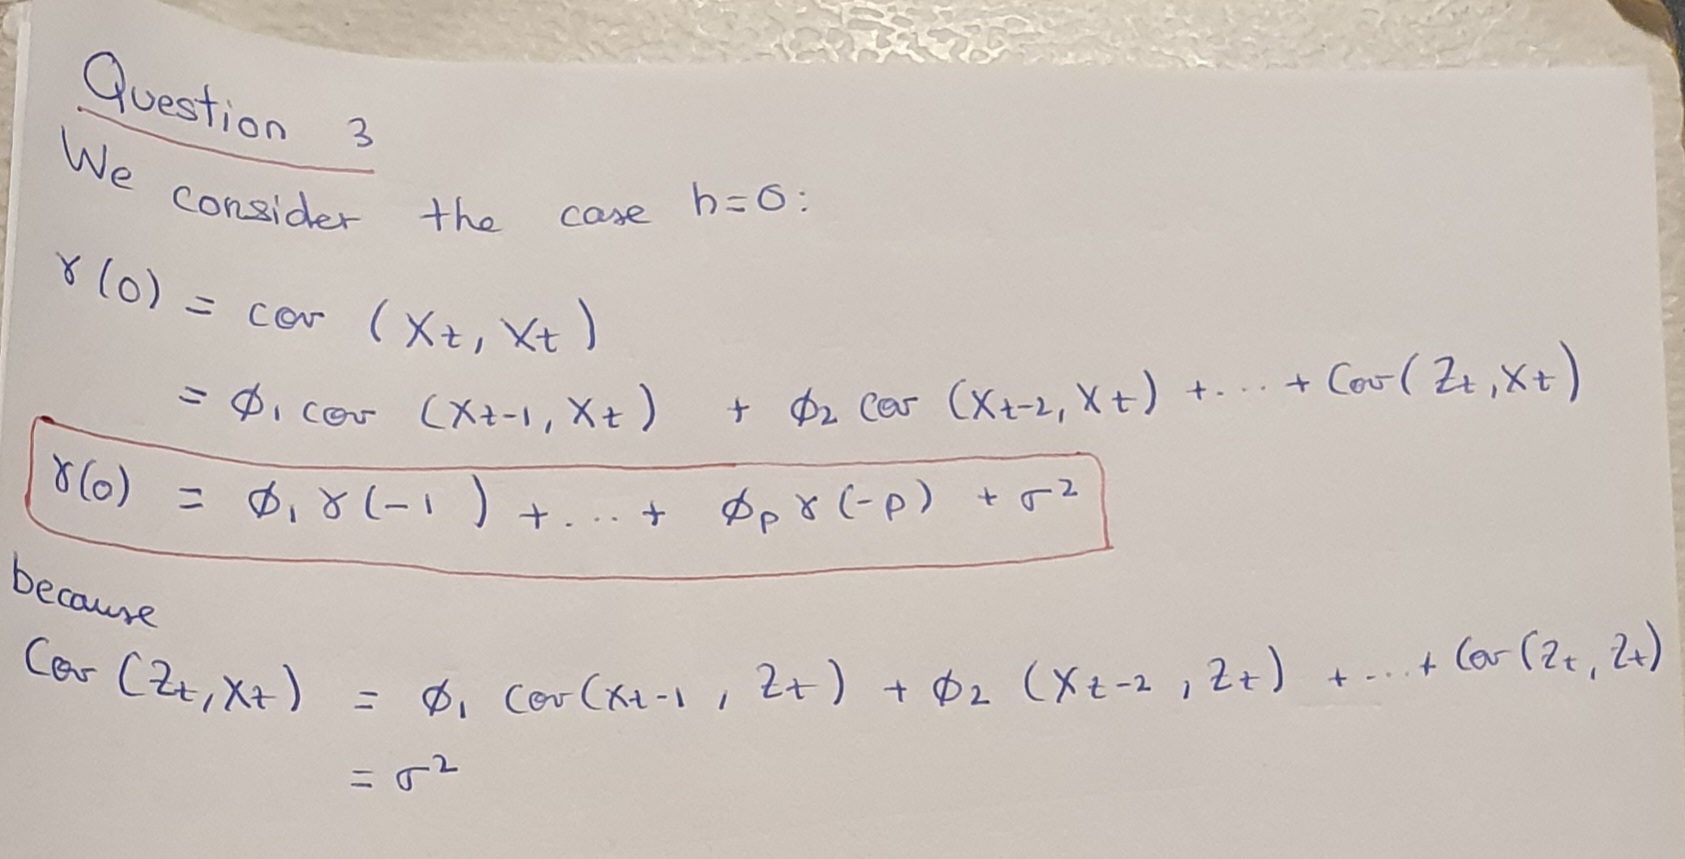 Question 3
We consider the case h=0:
γ(0) = cov (Xt, Xt)
= ϕ1 cov (Xt-1, Xt) + ϕ2 cov (Xt-2, Xt) +...+ Cov(Zt, Xt)
γ(0) = ϕ1 γ(-1) +...+ ϕp γ(-p) + σ²
because
Cov (Zt, Xt) = ϕ1 cov(Xt-1, Zt) + ϕ2 (Xt-2, Zt) +...+ Cov (Zt, Zt)
= σ²